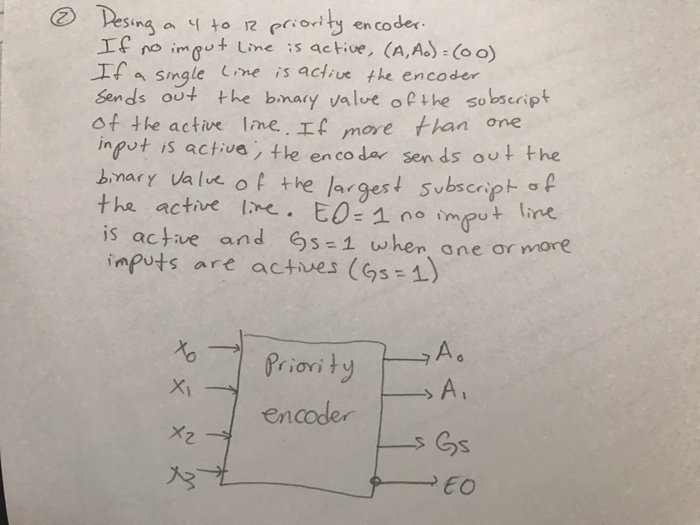 ② Desing a 4 to 12 priority encoder.
If no imput line is active, (A,A0)=(00)
If a single line is active the encoder
sends out the binary value of the subscript
of the active line. If more than one
input is active, the encoder sends out the
binary value of the largest subscript of
the active line. EO=1 no imput line
is active and Gs=1 when one or more
imputs are actives (Gs=1)
X0 Priority A0
X1 encoder A1
X2 Gs
X3 EO